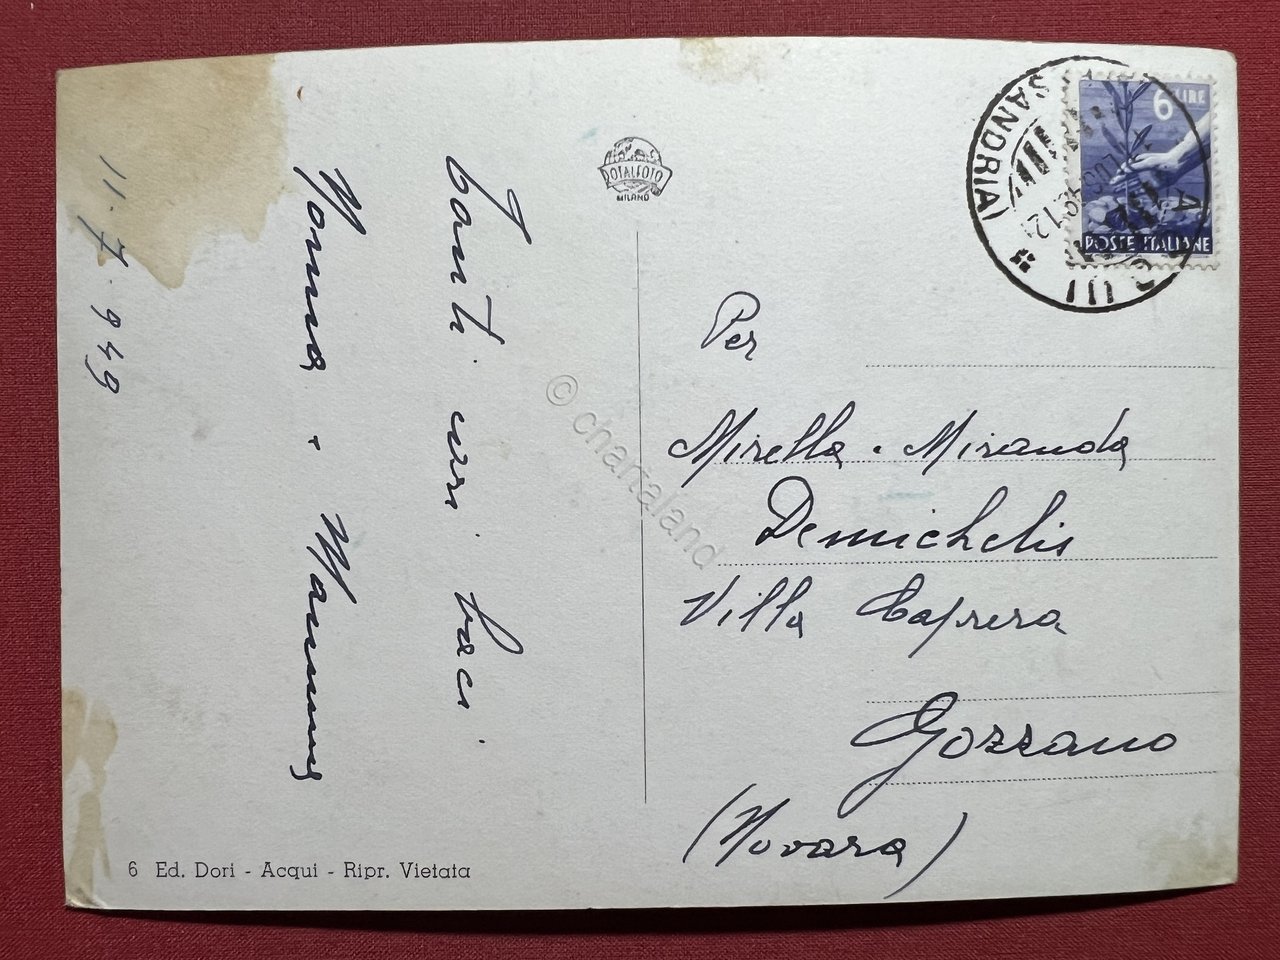 11.7.949
Tanti cari baci
Nonna e Mammy
DOTALFOTO
MILANO
6 LIRE
POSTE ITALIANE
ACQUI
SANDRIA)
Per
Mirella e Miranda
Demichelis
Villa Caprera
Gozzano
(Novara)
© chartaland
6 Ed. Dori - Acqui - Ripr. Vietata